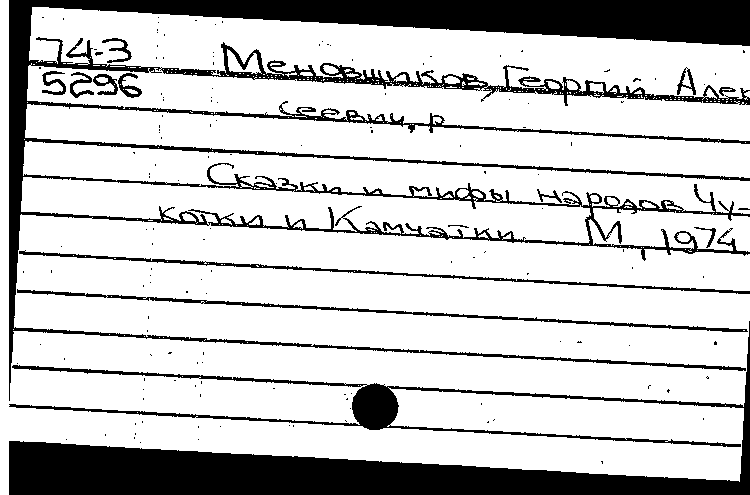 74-3 Меновщиков, Георгий Алек
5296
сеевич, р
Сказки и мифы народов Чу-
котки и Камчатки М, 1974